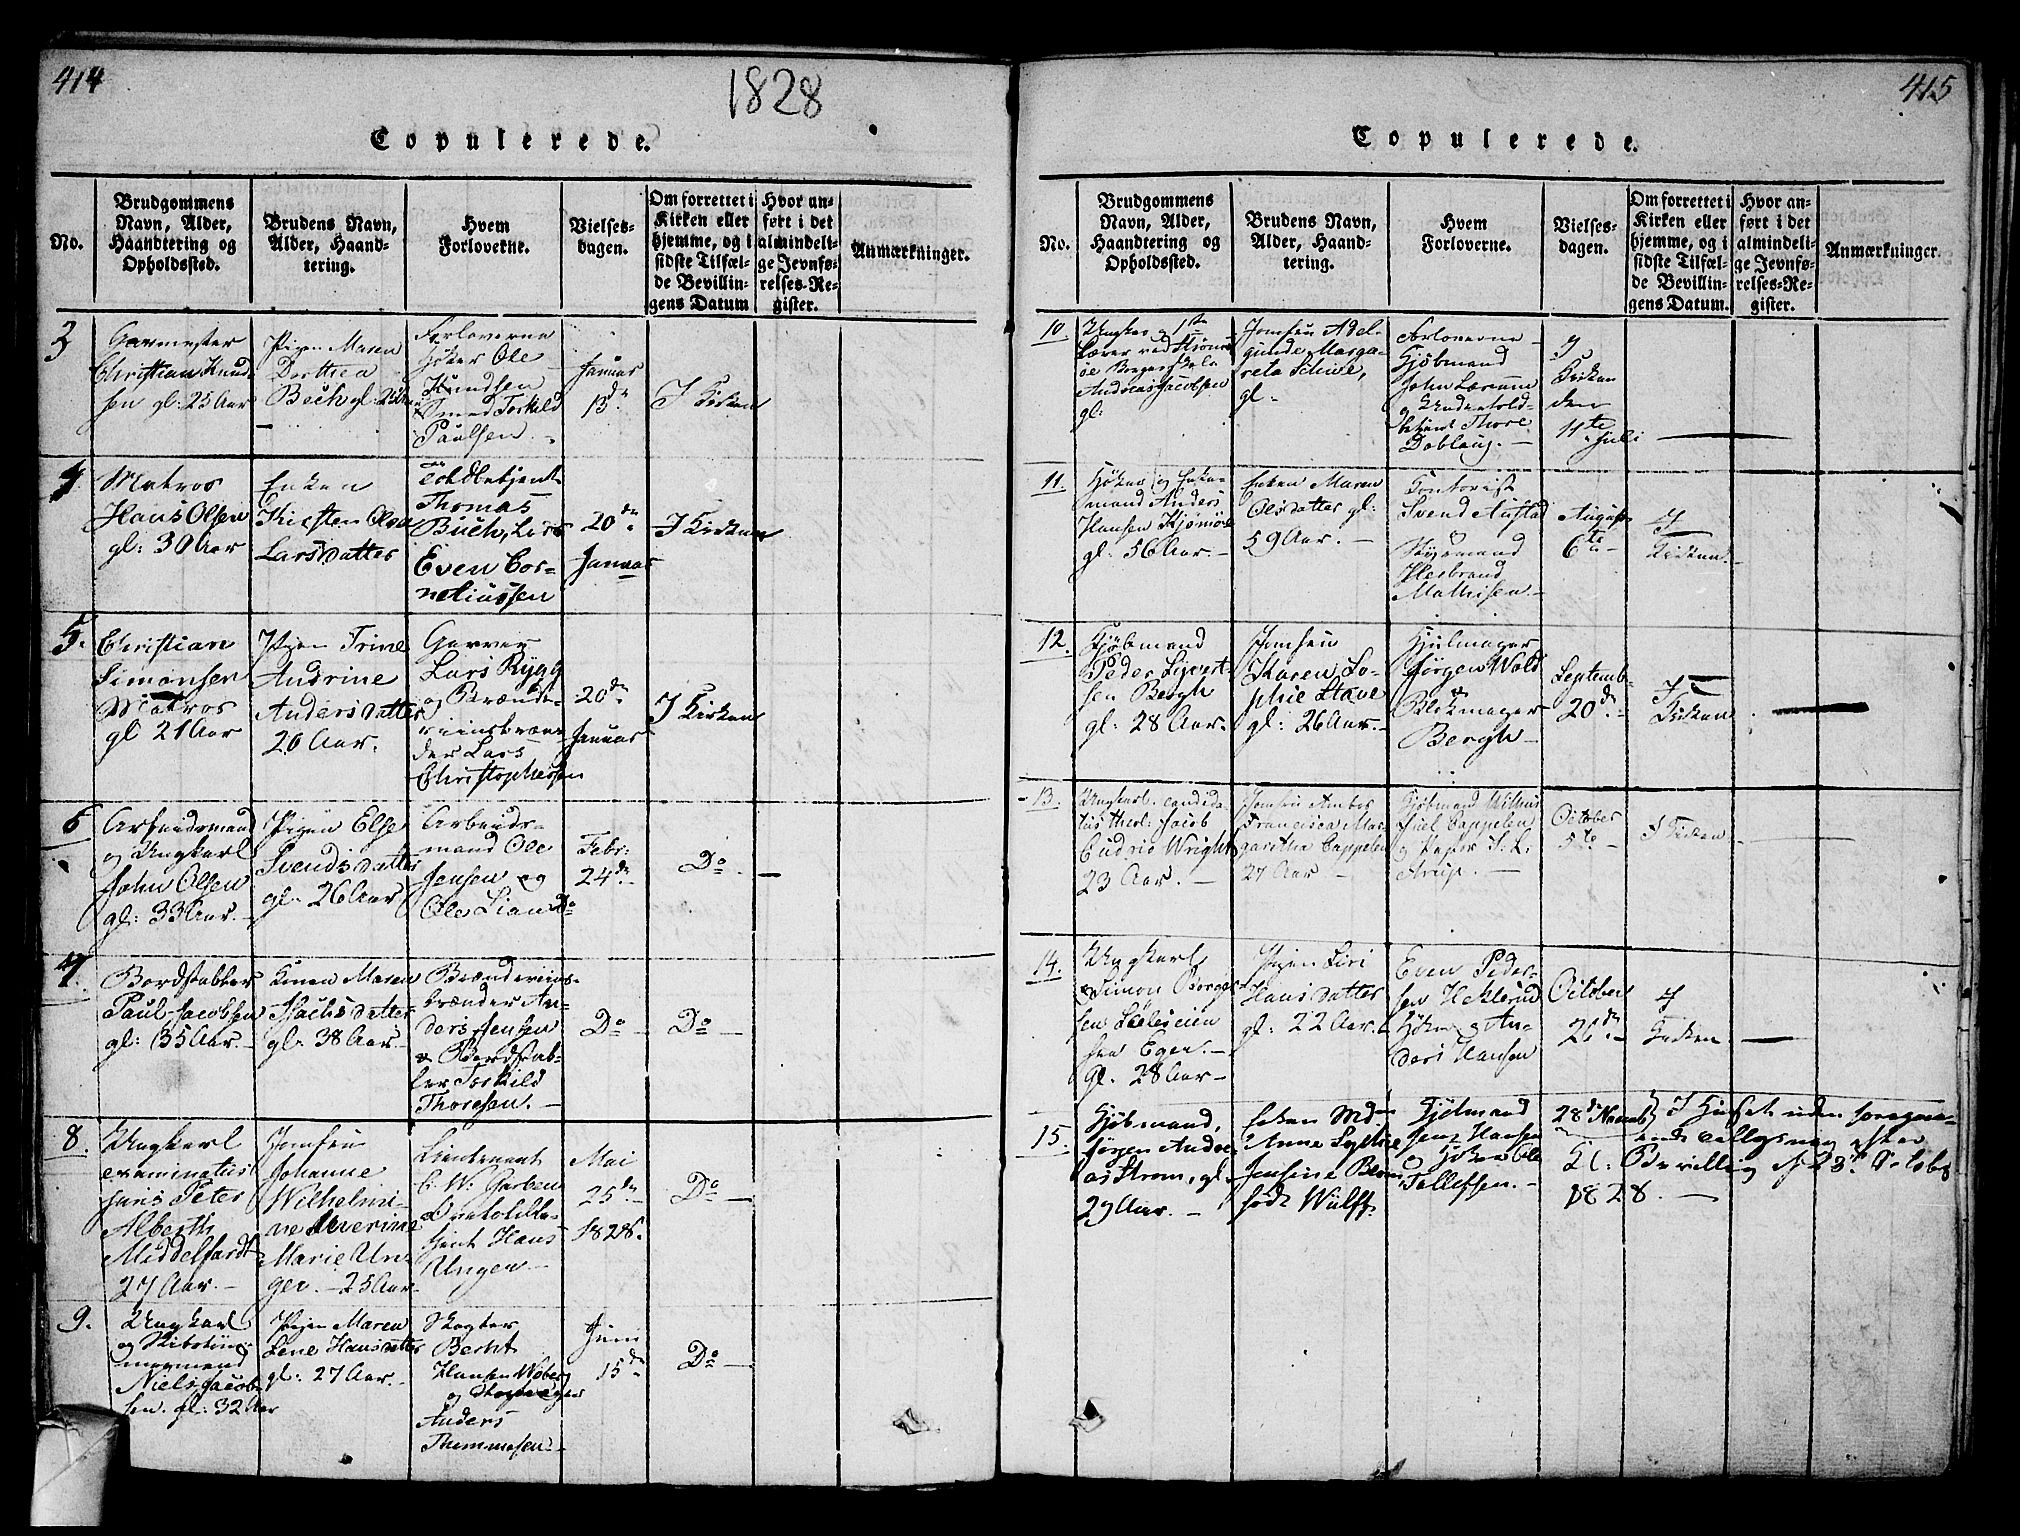 414
1828
Copulerede.
No.
Brudgommens
Navn, Alder,
Haandtering og
Opholdssted.
Brudens Navn,
Alder, Haand-
tering.
Hvem
Forloverne.
Vielses-
dagen.
Om forrettet i
Kirken eller
hjemme, og i
sidste Tilfæl-
de Bevillin-
gens Datum
Hvor an-
ført i det
almindeli-
ge Jevnfø-
relses-Re-
gister.
Anmærkninger.
3
Garmester
Christian Knud-
sen gl: 25 Aar
Pigen Maren
Dorthea
Buch gl:
Forloverne
Høker Ole
Knudsen
Smed Torkild
Paulsen.
Januar
13de
I Kirken
4
Matros
Hans Olsen
gl: 30 Aar
Enken
Kirsten Olea
Larsdatter
Toldbetjent
Thomas
Buch, Lars
Even Cor-
neliussen
20de
Januar
I Kirken
5.
Christian
Simonsen
Matros
gl 21 Aar
Pigen Trine
Andrine
Andersdatter
20 Aar.
Garver
Lars Rygg
og Brænde-
viinsbræn-
der Lars
Christophersen
20de
Januar
I Kirken
6
Arbeidsmand
og Ungkarl
John Olsen
gl: 33 Aar.
Pigen Else
Svendsdatter
gl. 26 Aar
Arbeids-
mand Ole
Jensen og
Ole Lian Do
Febr:
24de
Do
7.
Bordstabler
Paul Jacobsen
gl: 35 Aar.
Konen Maren
Isachsdatter
gl. 38 Aar.
Brændeviins-
brænder An-
ders Jensen
& Bordstab-
ler Torkild
Thoresen.
Do
Do
8.
Ungkarl
examinatus
juris Peter
Alberth
Middelfardt
27 Aar.
Jomfru
Johanne
Wilhelmi-
ne Severine
Marie Un-
ger. 25 Aar.
Lieutenant
C. W. Garben
Hans
Unger
Mai
25de
1828.
Do
9.
Ungkarl
og
Niels Jacob-
sen. gl: 32 Aar
Pigen Maren
Lene Hansdatter
gl: 27 Aar.
Skogter
Bernt
Hansen Wøberg
og
Anders
Thommesen.
Juni
15de
Do
415
Copulerede.
No.
Brudgommens
Navn, Alder,
Haandtering og
Opholdssted.
Brudens Navn,
Alder, Haand-
tering.
Hvem
Forloverne.
Vielses-
dagen.
Om forrettet i
Kirken eller
hjemme, og i
sidste Tilfæl-
de Bevillin-
gens Datum.
Hvor an-
ført i det
almindeli-
ge Jevnfø-
relses-Re-
gister.
Anmærkninger.
10.
Ungkar og 1ste
Lærer ved
Andreas Jacobsen
gl:
Jomfru Adel-
gunde Marga-
reta Schive,
gl.
Forloverne
Kjøbmand
John Larsen
og
Thore
Doblaug.
I
Kirken
den
11te
Juli
11.
Høker og Enke-
mand Anders
Hansen Kjømøe
gl: 56 Aar.
Enken Maren
Olsdatter gl:
59 Aar.
Contorist
Svend Austad
Styrmand
Hesbrand
Mathisen.
August
6te
I
Kirken.
12.
Kjøbmand
Peder Syvert-
sen Bergh
gl: 28 Aar.
Jomfru
Karen So-
phie Stave
gl: 26 Aar.
Hjulmager
Jørgen Wold
&
Blokmager
Bergh
Septemb.
20de
I
Kirken
13.
Ungkarl. candida-
tus theol: Jacob
Wright
23 Aar.
Jomfru Ambor
Francisca Mar-
garitha Cappelen
27 Aar
Kjøbmand
Juel Cappelen
og
Arup.
October
5te
I Kirken
14.
Ungkarl
Simon Børge-
sen
Egen.
gl. 28 Aar
Pigen Siri
Hansdatter
gl: 22 Aar.
Even Peder-
sen Heklerud
Høker og An-
ders Hansen
October
26de
I
Kirken
15.
Kjøbmand,
Jørgen Andre-
as Strøm, gl.
29 Aar.
Enken Md
Anne Sophie
Jensine Bernt
født Wulff.
Kjølmand
Jens Hansen
og Høker Ole
Tollefsen.
28de Novemb
I Huset uden foregaa-
ende Tillysning efter
Kl: Bevilling af 23de Octobr
1828.